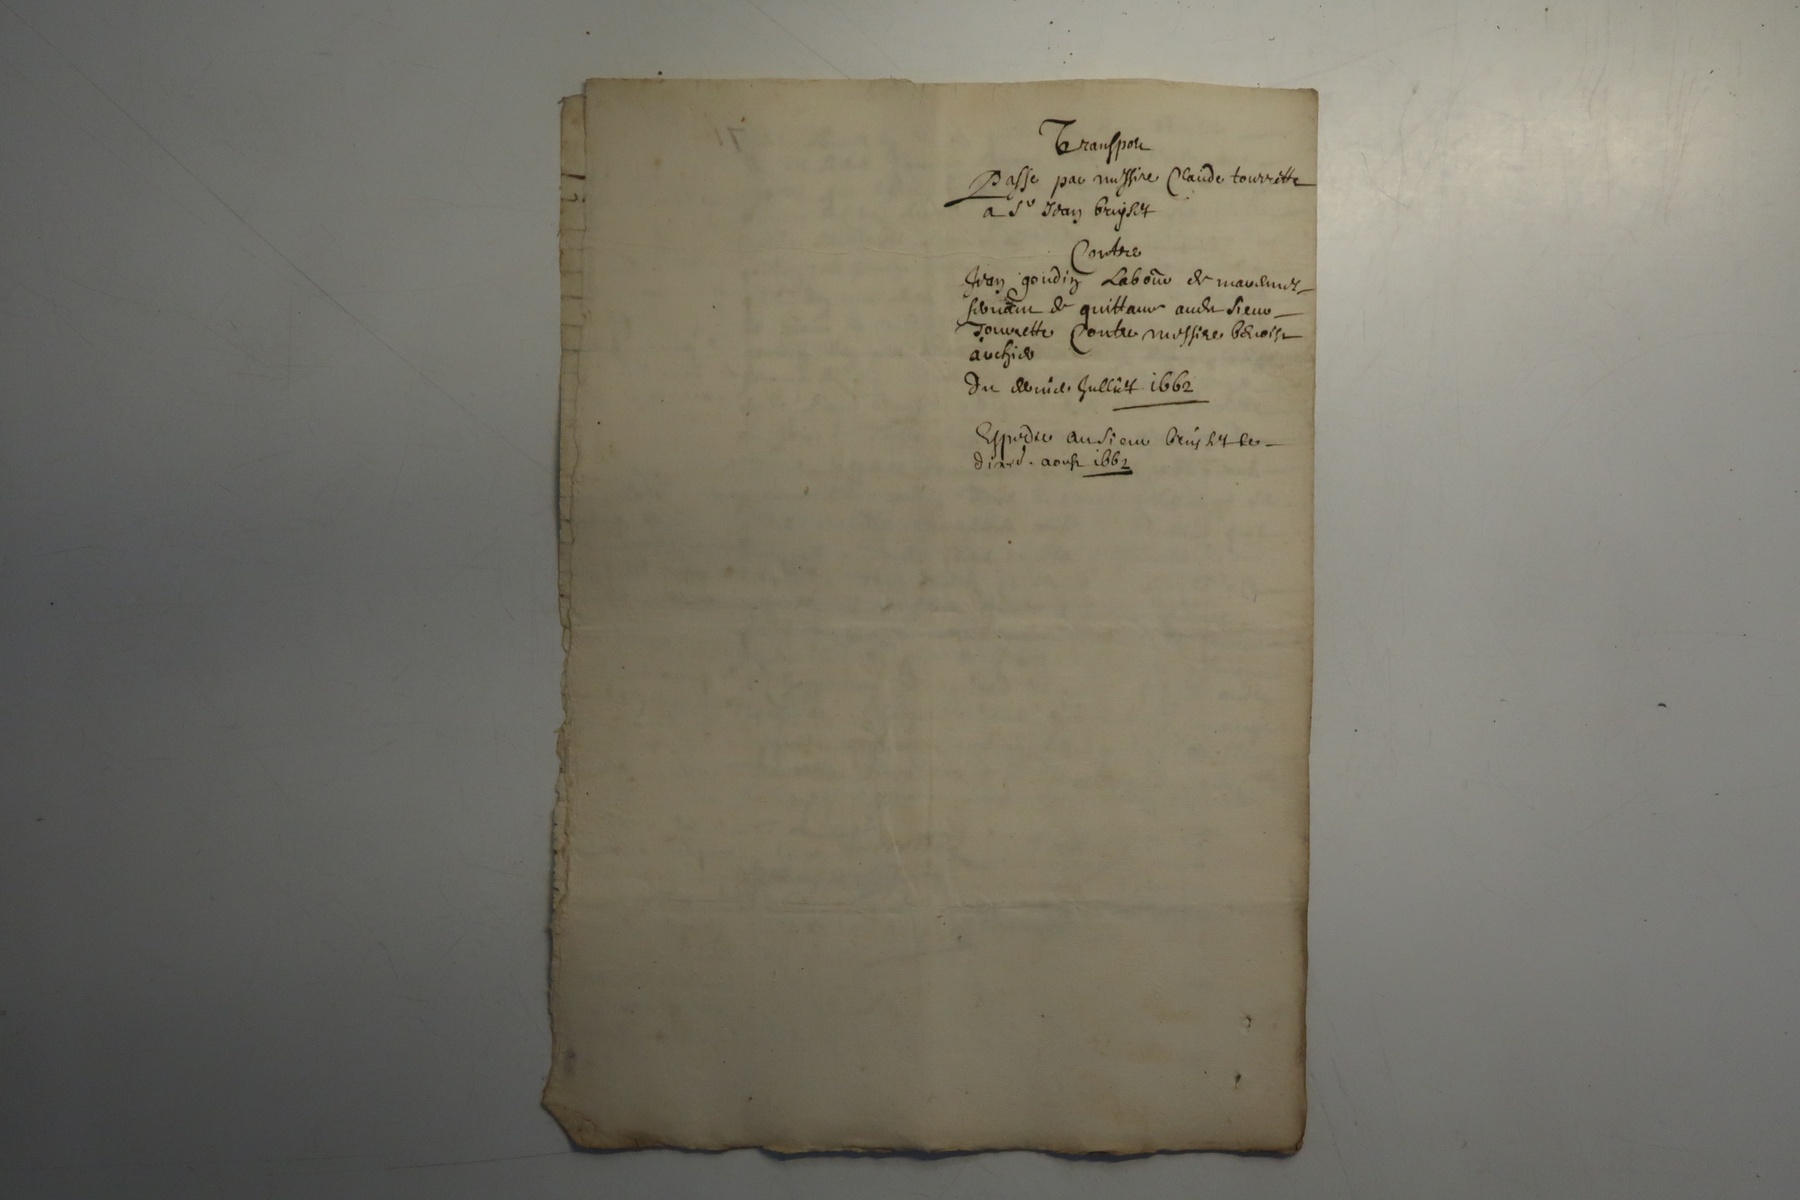 Transport
Passe par messire Claude tourrette
a Sr Jean bruyset
Contre
Jean goudin Labour de
servant de quittance audit Sieur
Tourrette Contre messire benoist
archier
Du Juillet 1662
Expedie au Sieur bruyset le
aoust 1662